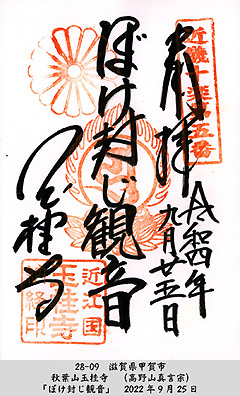 近畿十楽第五番
奉拝
令和四年
九月廿五日
ぼけ封じ観音
玉桂寺
近江国
玉桂寺
納経印
28-09 滋賀県甲賀市
秋葉山玉桂寺 (高野山真言宗)
「ぼけ封じ観音」 2022年9月25日